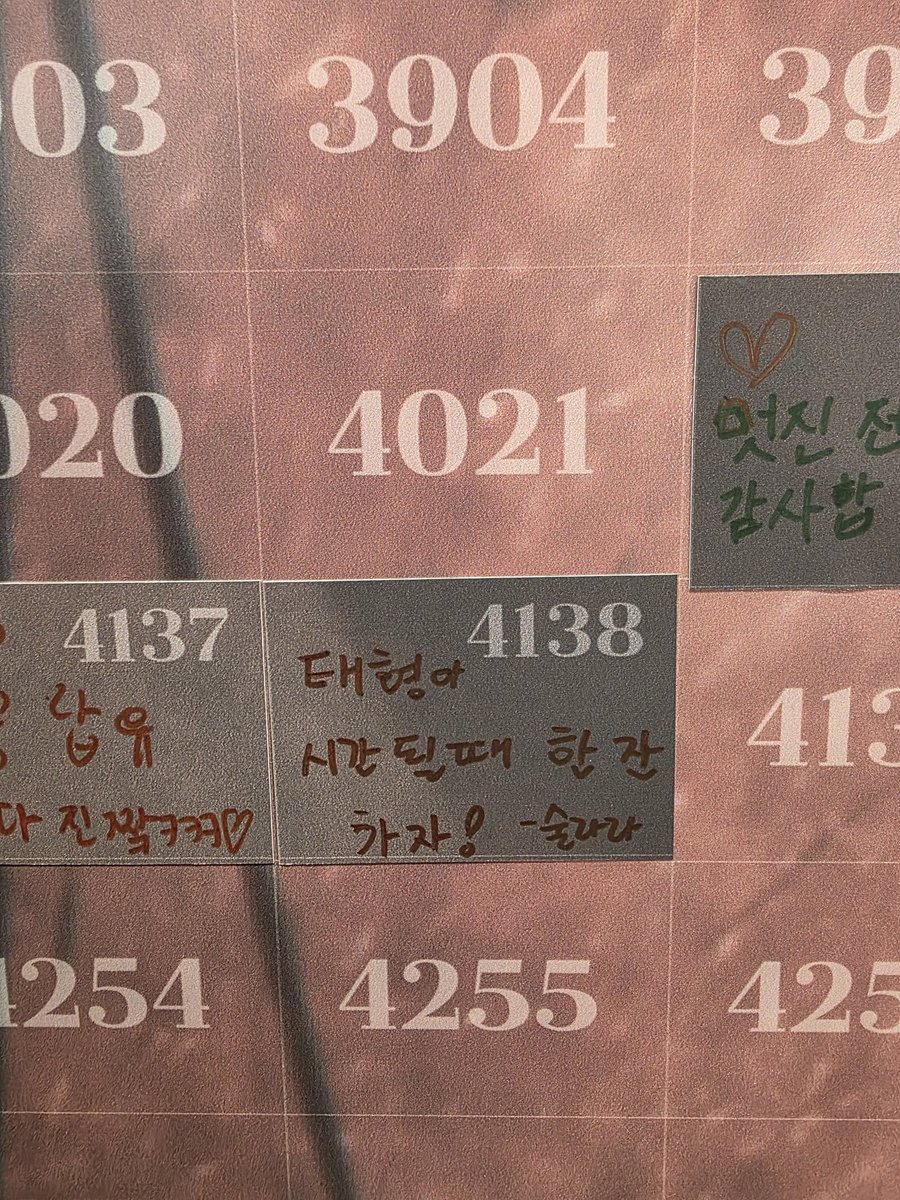 03 3904 39
020 4021
멋진 전
감사합
4137
답유
다 진짞ㅋㅋㅋ♡
4138
태형아
시간될때 한잔
하자! -술라라
413
4254 4255 425